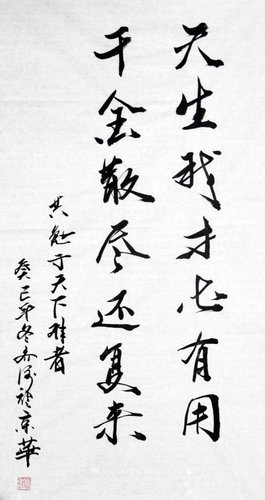 天生我才必有用
千金散尽还复来
共勉于天下维者
癸巳年冬赤海神京華